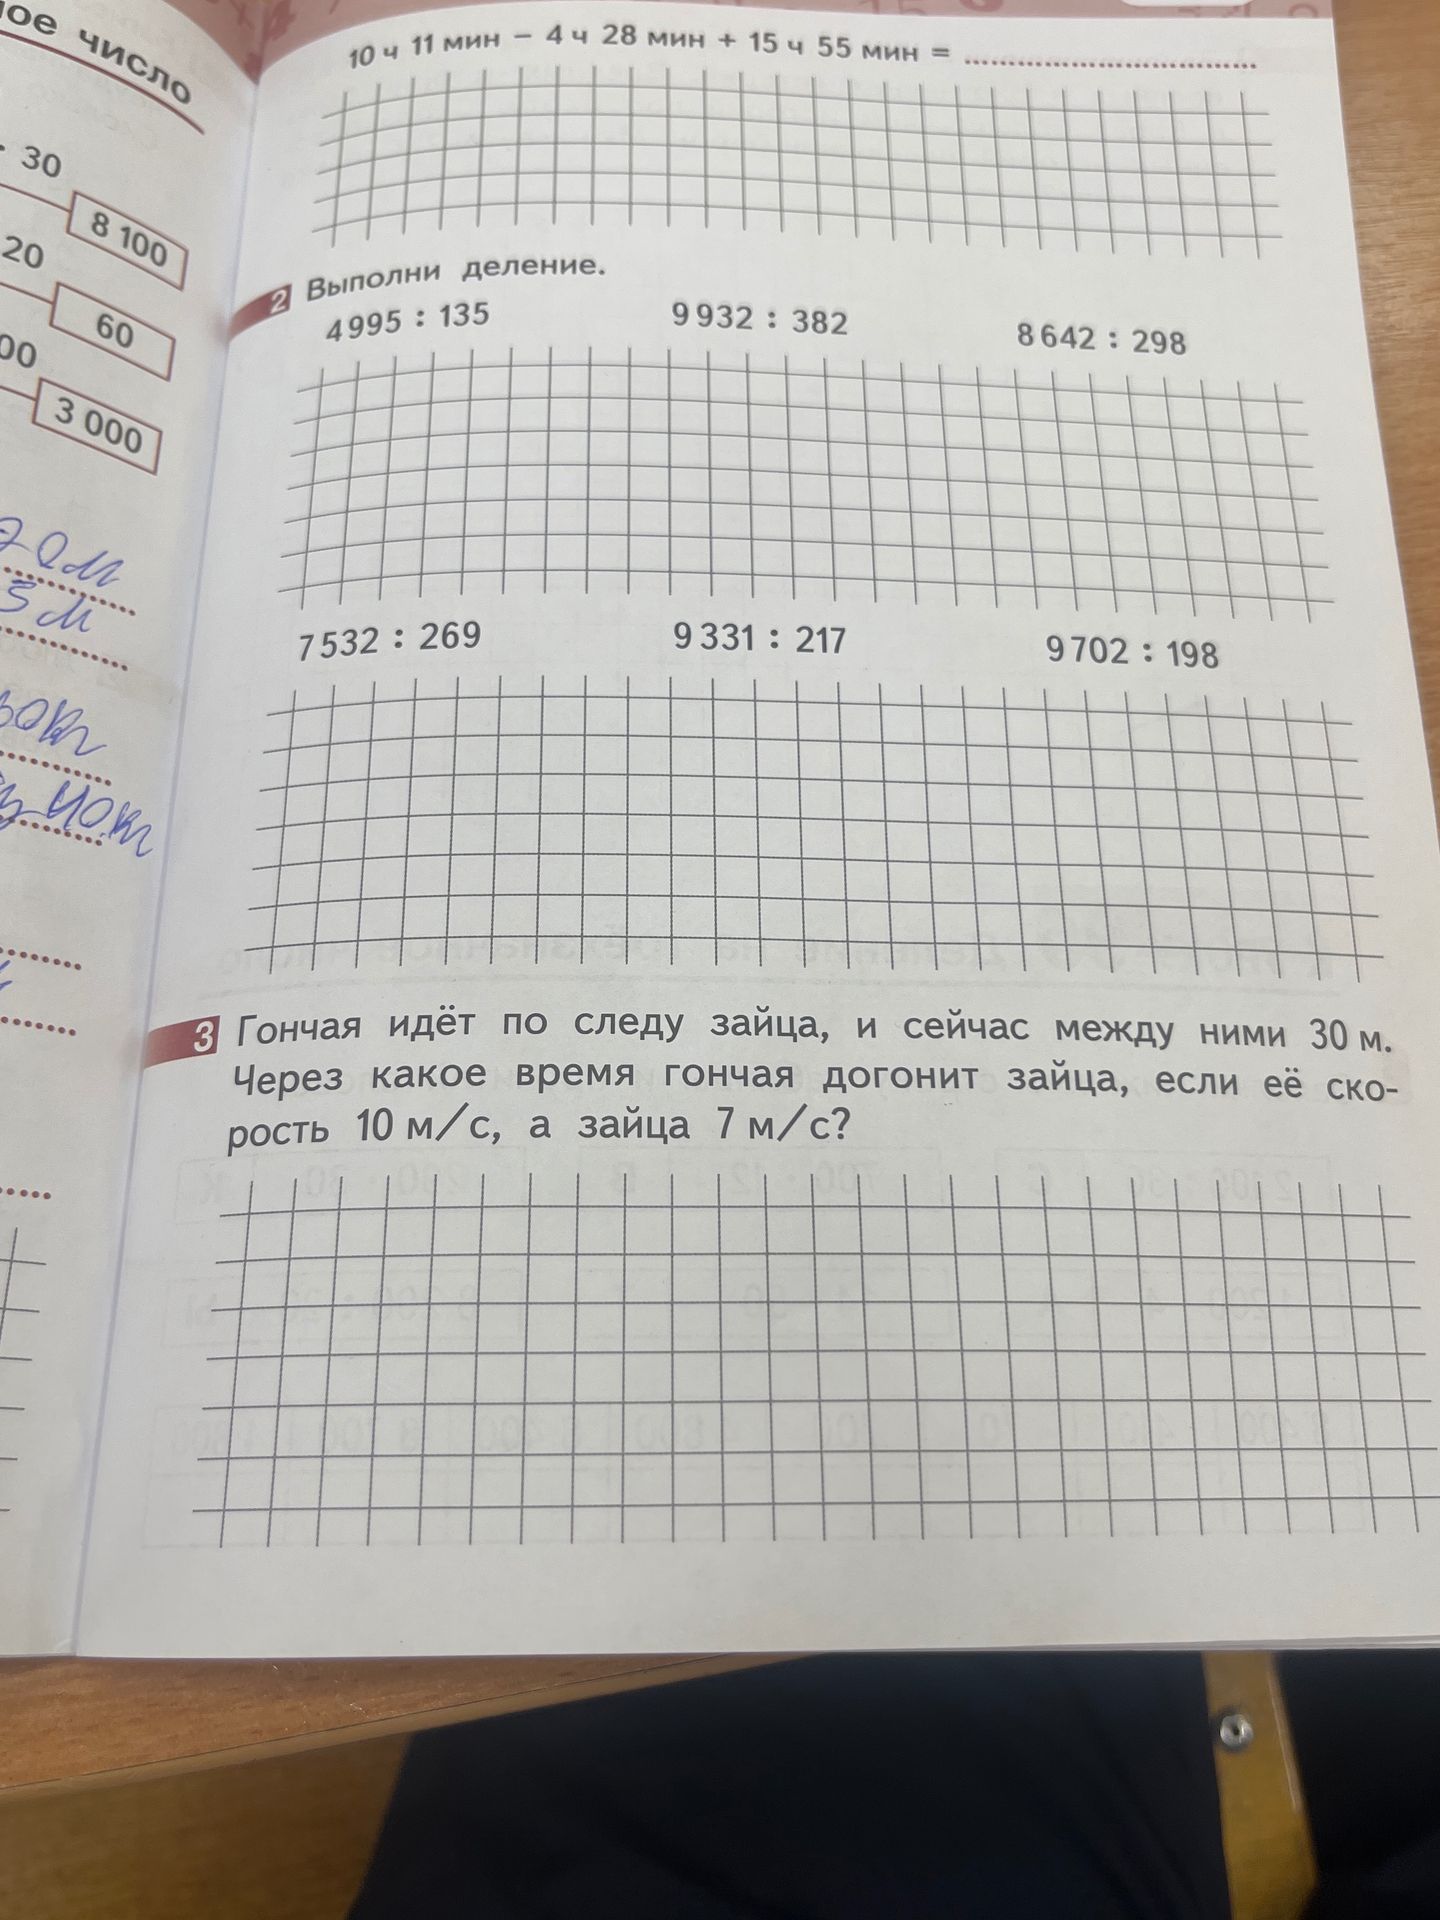 ое число
· 30
8 100
20
60
00
3 000
20 м
5 м
10 ч 11 мин − 4 ч 28 мин + 15 ч 55 мин =
2 Выполни деление.
4 995 : 135 9 932 : 382 8 642 : 298
7 532 : 269 9 331 : 217 9 702 : 198
3 Гончая идёт по следу зайца, и сейчас между ними 30 м.
Через какое время гончая догонит зайца, если её ско-
рость 10 м/с, а зайца 7 м/с?